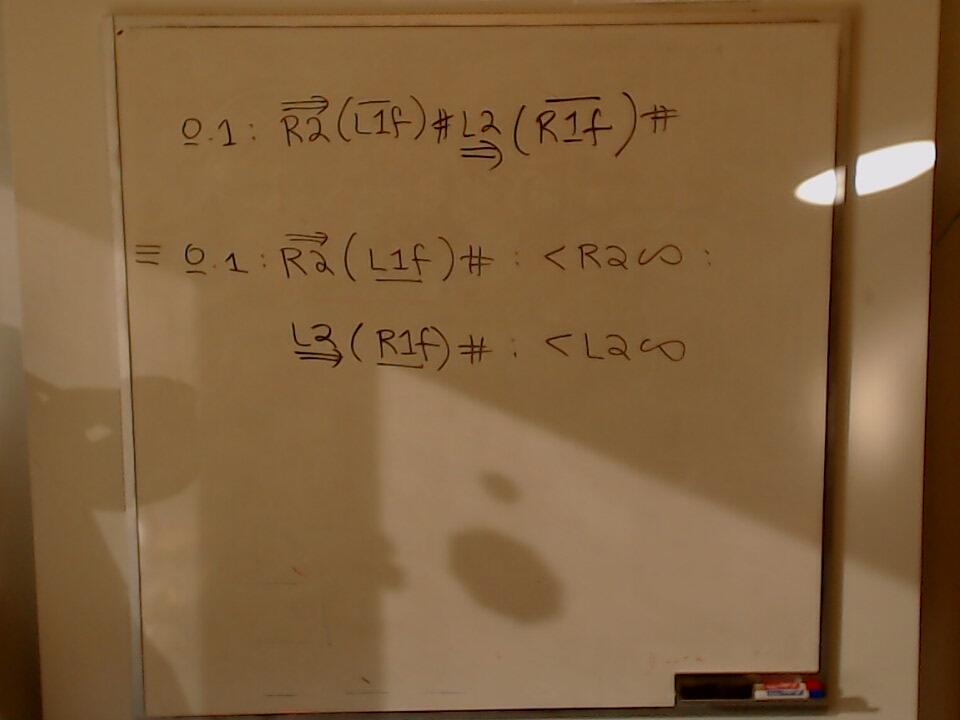 0.1: R2(L1f)#L2(R1f)#
≡ 0.1: R2(L1f)# : <R2∞ :
L2(R1f)# : <L2∞